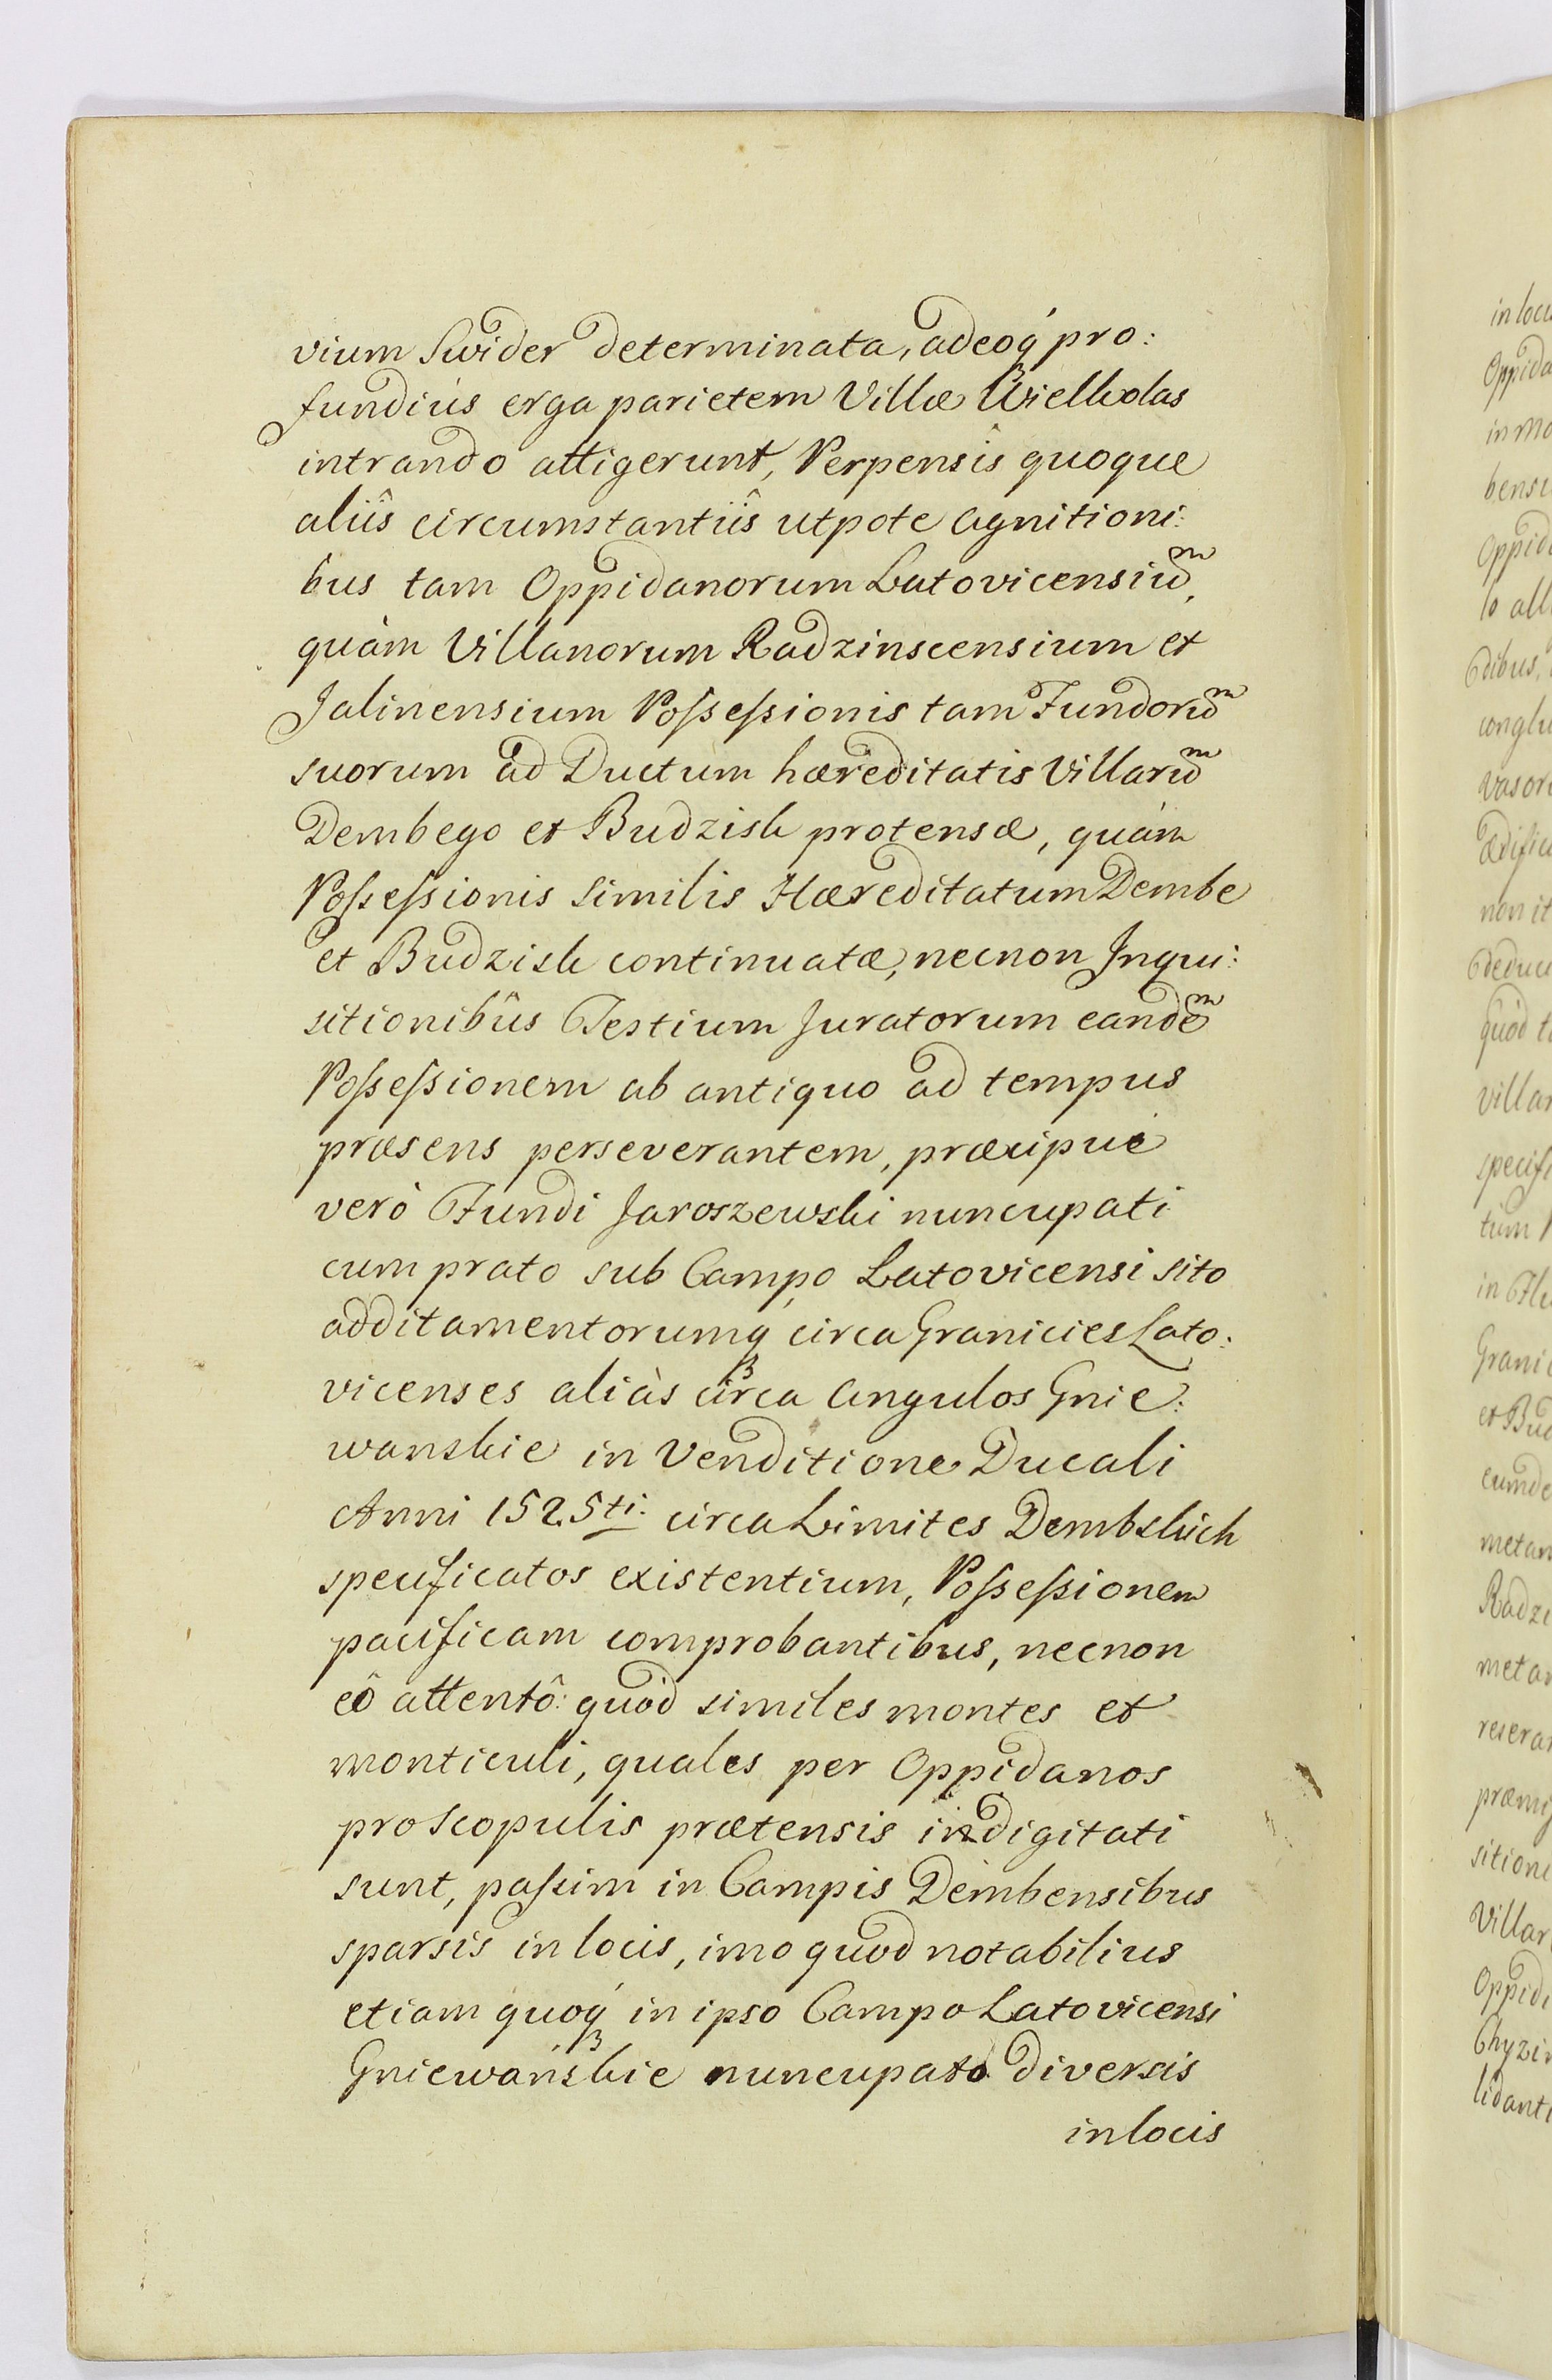 vium Swider determinata, adeoq́ pro:
fundiùs erga parietem Villæ Wielkolas
intrando attigerunt, Perpensîs quoque
aliîs circumstantiîs utpote Agnitioni:
bus tam Oppidanorum Latovicensiuᵐ,
quàm Villanorum Radzinscensium et
Jalinensium Possessionis tam Fundoruᵐ
suorum ad Ductum hæreditatis Villaruᵐ
Dembego et Budzisk protensæ, quàm
Possessionis similis Hæreditatum Dembe
et Budzisk continuatæ, necnon Inqui:
sitionibûs Testium Juratorum eandeᵐ
Possessionem ab antiquo ad tempus
præsens perseverantem, præcipuè
verò Fundi Jaroszewski nuncupati
cum prato sub Campo Latovicensi sito
additamentorumq́ circa Granicies Lato:
vicenses aliàs circa Angulos Gnie:
wanskie in Venditione Ducali
Anni 1525ti. circa Limites Dembskich
specificatos existentium, Possessionem
pacificam comprobantibus, necnon
eô attentô: quòd similes montes et
monticuli, quales per Oppidanos
pro Scopulis prætensis indigitati
sunt, passim in Campis Dembensibus
sparsis in locis, imo quod notabilius
etiam quoq́ in ipso Campo Latovicensi
Gniewańskie nuncupato diversis
in locis
in locis
Oppida
in mo
bensi
Oppid
lo all
dibus,
conglu
vasor
ædific
non it
deduc
quòd t
villar
specifi
tùm
in Flu
Granic
et Bud
eumde
metam
Radzi
metar
reserar
præmiſ
sitione
Villar
Oppid
Chyzin
lidant